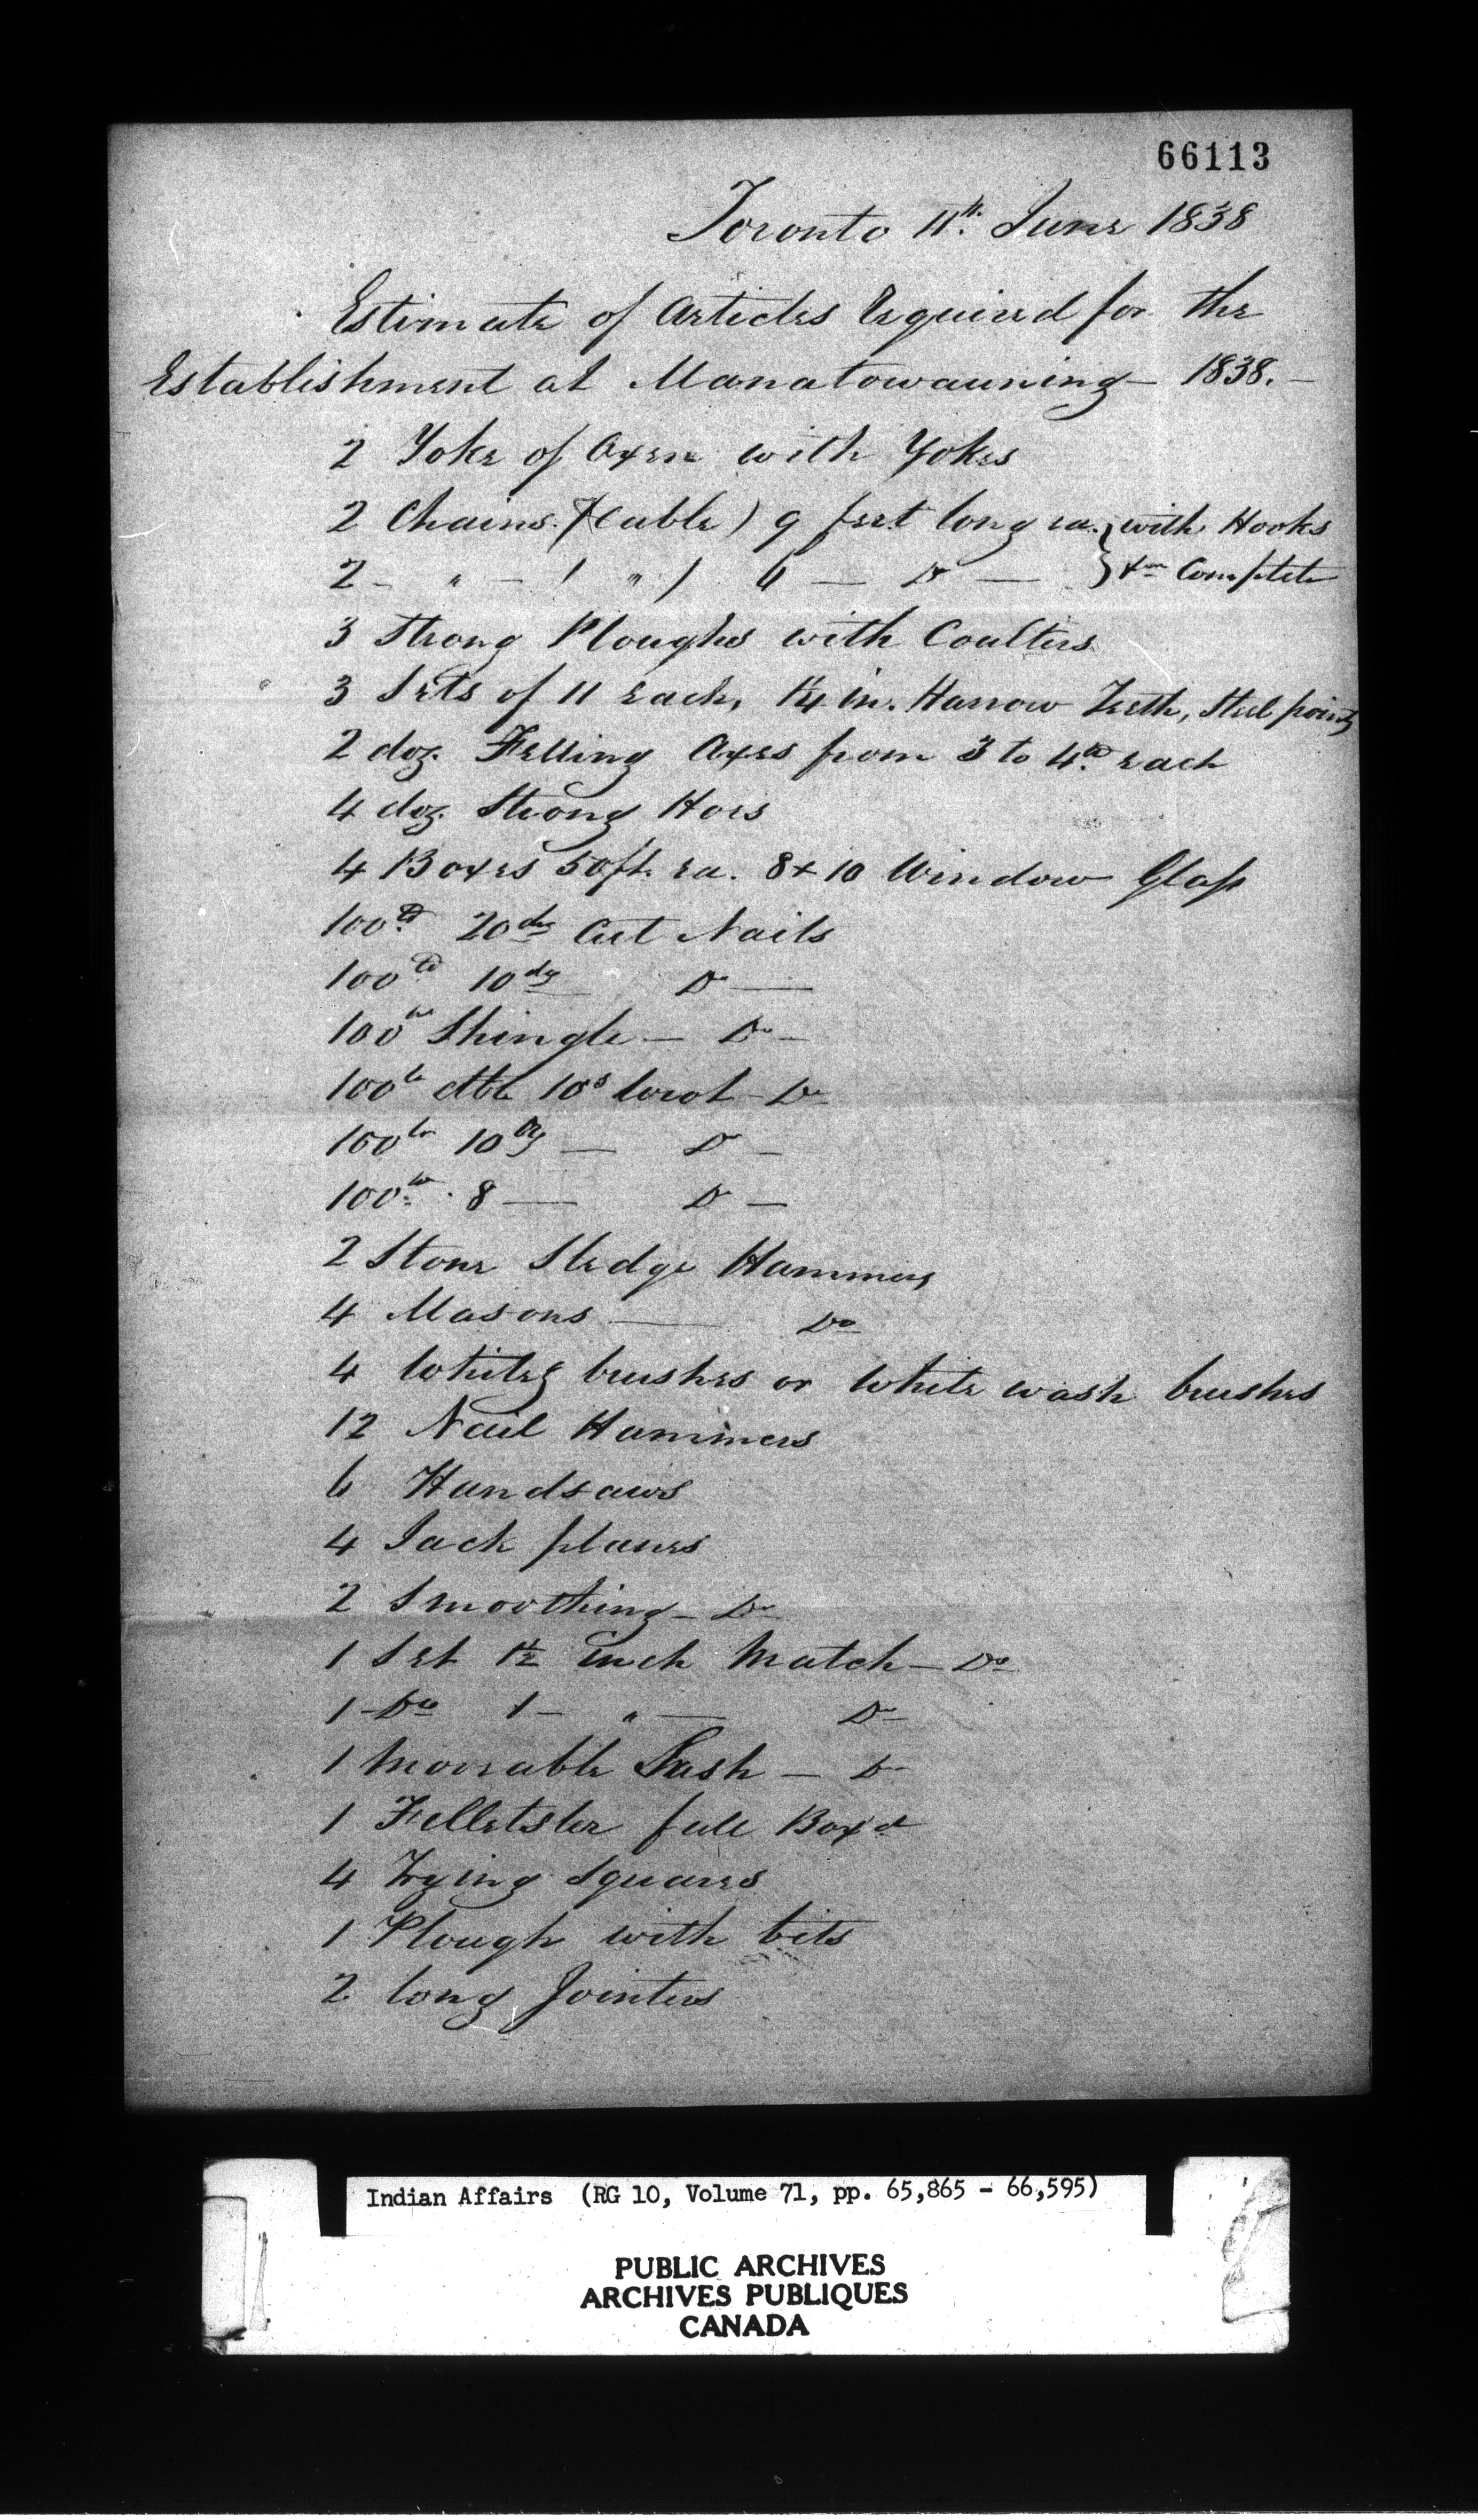 66113
Toronto 11th. June 1838
Estimate of Articles Required for the
Establishment at Manatowauning - 1838. -
2 Yoke of Oxen with Yokes
2 Chains (Cable) 9 feet long ea. } with Hooks
2 - " - ( " ) 6 — Do — } &c Complete
3 Strong Ploughs with Coulters
3 Sets of 11 each, 1 1/4 in. Harrow Teeth, Steel points
2 doz. Felling Axes from 3 to 4 lb each
4 doz. Strong Hoes
4 Boxes 50 ft. ea. 8 x 10 Window Glass
100 lb 20 dy Cut Nails
100 lb 10 dy Do —
100 lb Shingle — Do -
100 lb dble 10s Wrot - Do
100 lb 10 dy — Do -
100 lb. 8 — Do —
2 Stone Sledge Hammers
4 Masons — Do
4 Whiteg brushes or White wash brushes
12 Nail Hammers
6 Handsaws
4 Jack planes
2 Smoothing - Do
1 Set 1 1/2 inch Match - Do
1 - Do 1 - " — Do
1 Moveable Sash — Do
1 Felletster full Boxd
4 Trying Squares
1 Plough with bits
2 long Jointers
Indian Affairs (RG 10, Volume 71, pp. 65,865 - 66,595)
PUBLIC ARCHIVES
ARCHIVES PUBLIQUES
CANADA